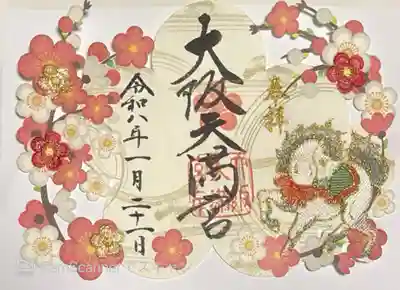 奉拝
大阪天満宮
令和八年一月二十二日